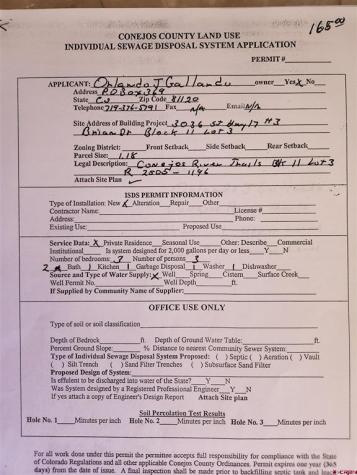 165.00
CONEJOS COUNTY LAND USE
INDIVIDUAL SEWAGE DISPOSAL SYSTEM APPLICATION
PERMIT#
APPLICANT: Orlando J Gallardo owner Yes X No
Address P.O Box 369
State Co Zip Code 81120
Telephone 719-376-5791 Fax N/A Email N/A
Site Address of Building Project 3036 St Hwy 17 #3
Brian Dr Block 11 Lot 3
Zoning District: Front Setback Side Setback Rear Setback
Parcel Size: 1.18
Legal Description: Conejos River Trails Blk 11 Lot 3
R 2005-1146
Attach Site Plan ✓
ISDS PERMIT INFORMATION
Type of Installation: New X Alteration Repair Other
Contractor Name: License #
Address: Phone:
Existing Use: Proposed Use
Service Data: X Private Residence Seasonal Use Other: Describe Commercial
Institutional Is system designed for 2,000 gallons per day or less Y N
Number of bedrooms: Number of persons 3
2 Bath 1 Kitchen 1 Garbage Disposal 1 Washer 1 Dishwasher
Source and Type of Water Supply: X Well Spring Cistern Surface Creek
Well Permit No. Well Depth ft.
If Supplied by Community Name of Supplier:
OFFICE USE ONLY
Type of soil or soil classification
Depth of Bedrock ft. Depth of Ground Water Table: ft.
Percent Ground Slope: % Distance to nearest Community Sewer System:
Type of Individual Sewage Disposal System Proposed: ( ) Septic ( ) Aeration ( ) Vault
( ) Silt Trench ( ) Sand Filter Trenches ( ) Subsurface Sand Filter
Proposed Design of System:
Is effluent to be discharged into water of the State? Y N
Was System designed by a Registered Professional Engineer Y N
If yes attach a copy of Engineer's Design Report Attach Site plan
Soil Percolation Test Results
Hole No. 1 Minutes per inch Hole No. 2 Minutes per inch Hole No. 3 Minutes per inch
For all work done under this permit the permittee accepts full responsibility for compliance with the State
of Colorado Regulations and all other applicable Conejos County Ordinances. Permit expires one year (365
days) from the date of issue. A final inspection shall be made prior to backfilling septic tank and